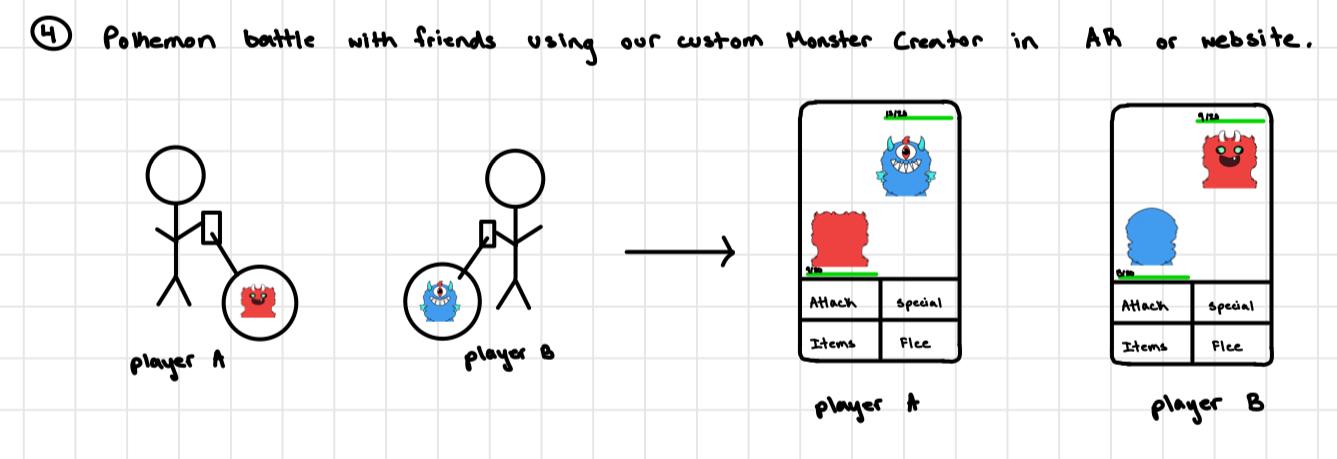 4 Pokemon battle with friends using our custom Monster Creator in AR or website.
player A
player B
Attack Special
Items Flee
player A
9/20
Attack Special
Items Flee
player B